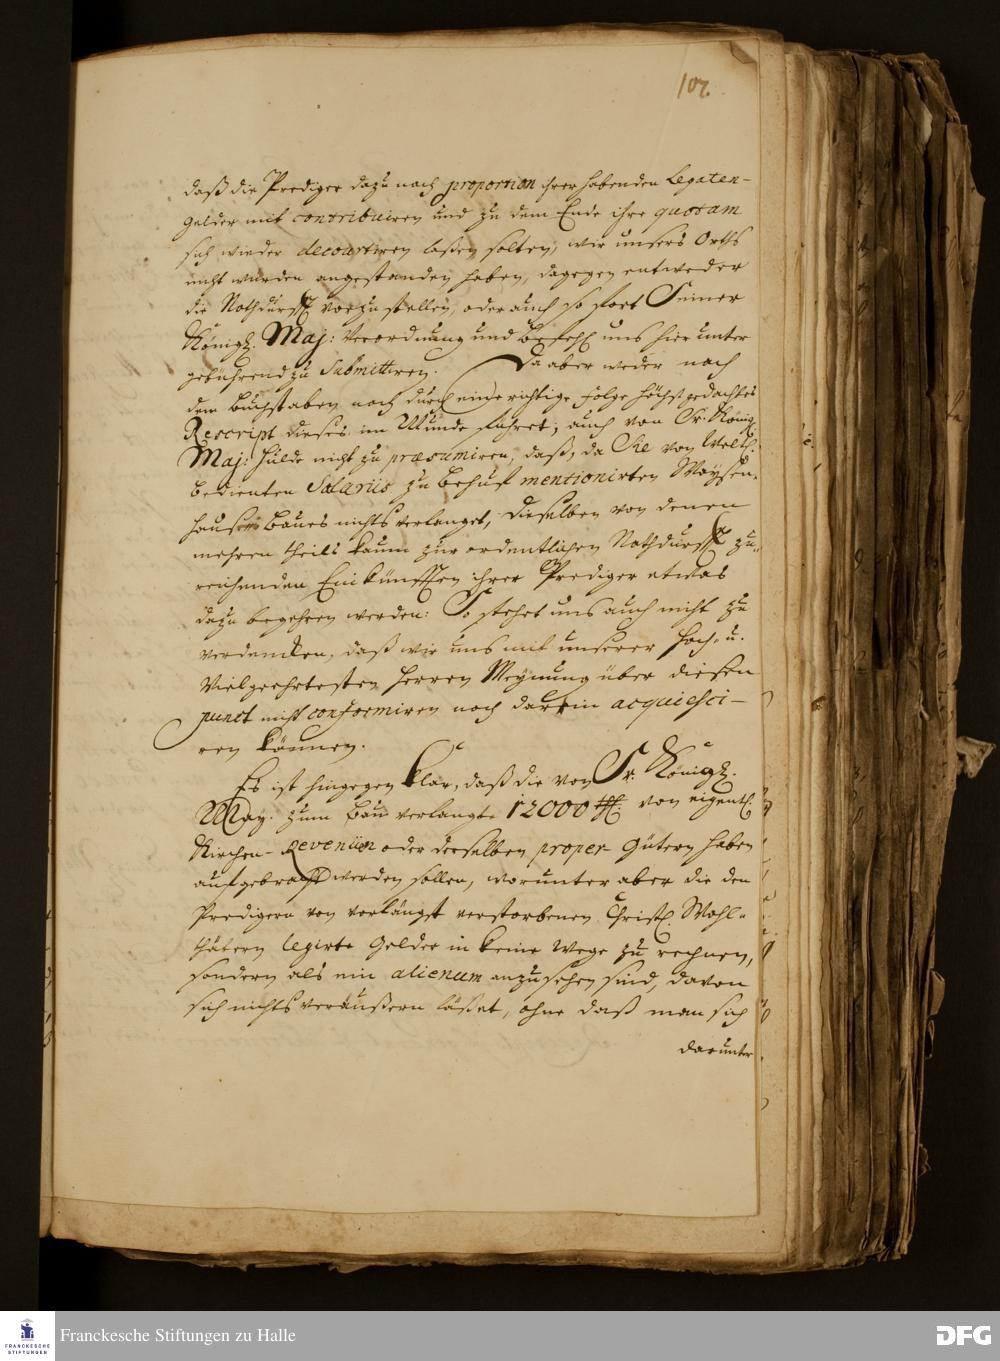 107.
daß die Prediger dazu nach proportion ihrer habenden Legaten-
Gelder mit contribuiren und zu dem Ende ihre quotam
sich wieder decourtiren laßen solten, wir unsers Orths
nicht würden angestanden haben, dagegen entweder
die Nothdurfft vorzustellen, oder auch so fort Seiner
Königl. Maj: Verordnung und Befehl uns hierunter
gebührend zu Submittiren. Da aber weder nach
dem Buchstaben noch durch eine richtige Folge höchst gedachtes
Rescript dieses im Munde führet, auch von Sr. Königl.
Maj: Hulde nicht zu præsumiren, daß, da Sie von Weltl.
Bedienten Salariis zu Behuf mentionirten Waysen-
hauses Baues nichts verlanget, dieselben von denen
mehren theils kaum zur ordentlichen Nothdurfft zu-
reichenden Einkünfften ihrer Prediger etwas
dazu begehren werden: So stehet uns auch nicht zu
verdencken, daß wir uns mit unserer Hoch- u.
Vielgeehrtesten Herren Meynung über diesen
punct nicht conformiren noch darein acquiesci-
ren können.
Es ist hingegen klar, daß die von Sr. Königl.
May. zum Bau verlangte 12000 von eigentl.
Kirchen-Revenüen oder derselben proper Gütern haben
aufgebracht werden sollen, worunter aber die den
Predigern von vorlängst verstorbenen Christl. Wohl-
thätern legirte Gelder in keine Wege zu rechnen,
sondern als ein alienum anzusehen sind, davon
sich nichts veräußern läßet, ohne daß man sich
darunter
Franckesche Stiftungen zu Halle
FRANCKESCHE
STIFTUNGEN
DFG